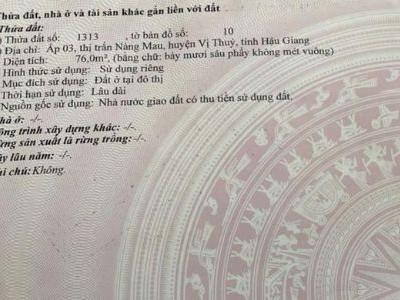 Thửa đất, nhà ở và tài sản khác gắn liền với đất
Thửa đất:
) Thửa đất số: 1313 , tờ bản đồ số: 10
) Địa chỉ: Ấp 03, thị trấn Nàng Mau, huyện Vị Thuỷ, tỉnh Hậu Giang
Diện tích: 76,0m², (bằng chữ: bảy mươi sáu phẩy không mét vuông)
Hình thức sử dụng: Sử dụng riêng
Mục đích sử dụng: Đất ở tại đô thị
Thời hạn sử dụng: Lâu dài
Nguồn gốc sử dụng: Nhà nước giao đất có thu tiền sử dụng đất.
hà ở: -/-.
ông trình xây dựng khác: -/-.
ừng sản xuất là rừng trồng: -/-.
ây lâu năm: -/-.
hi chú: Không.